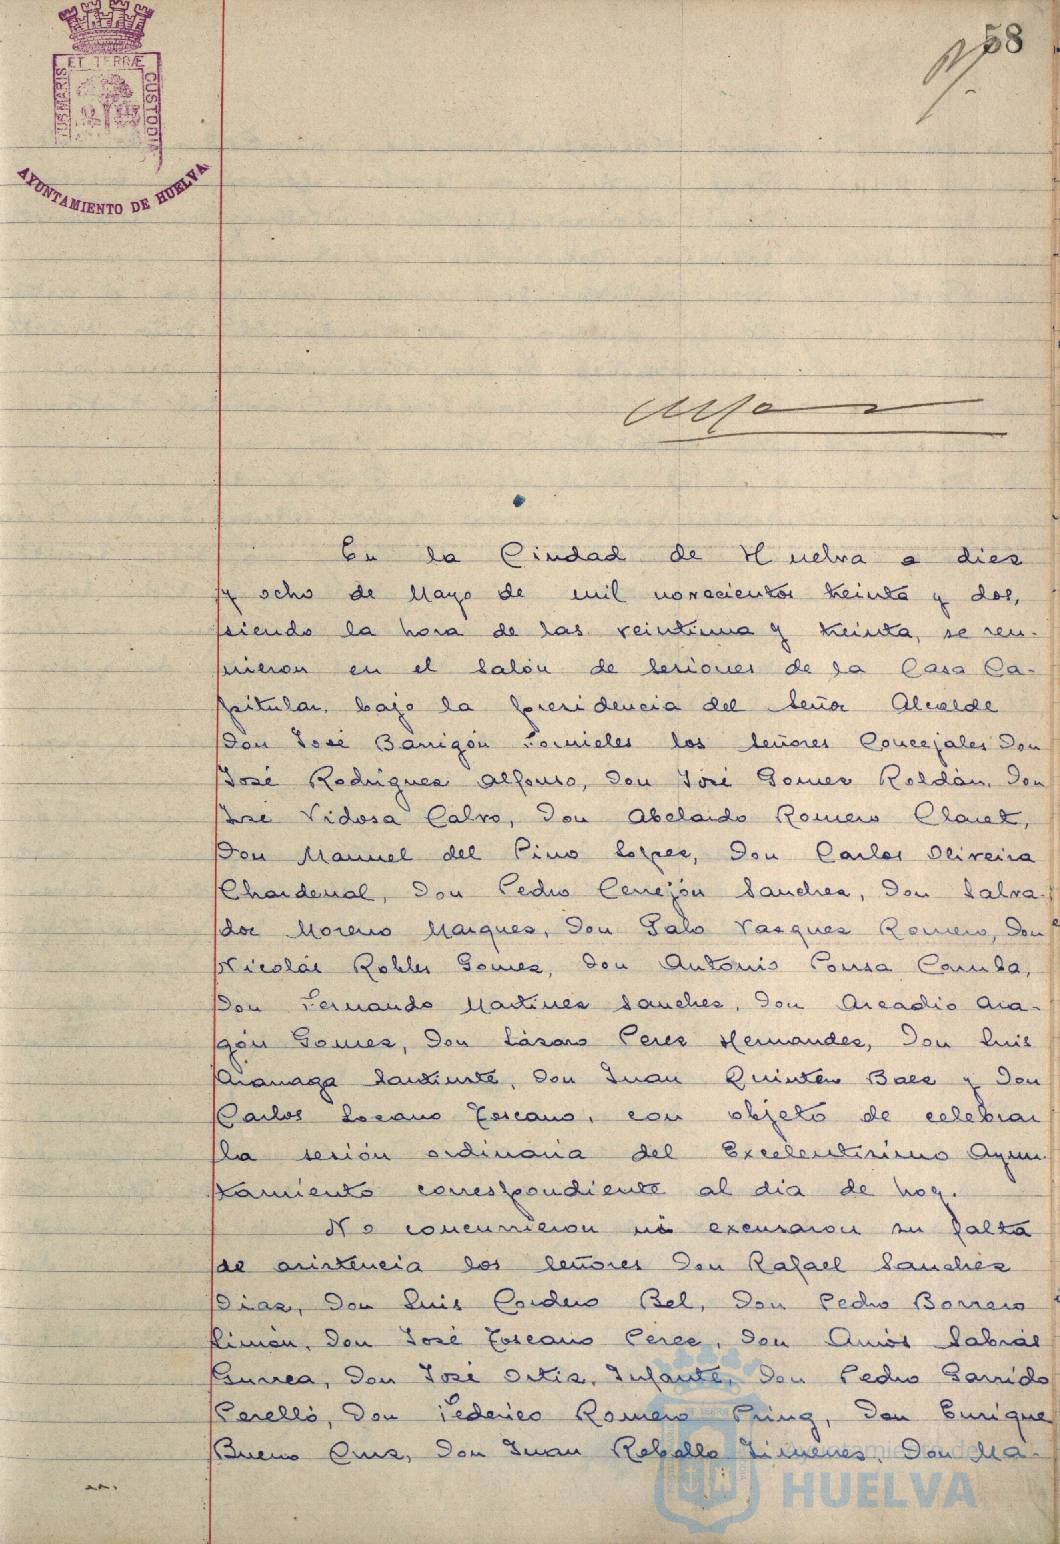 58
ET TERRÆ
IUS MARIS
CUSTODIA
AYUNTAMIENTO DE HUELVA
En la Ciudad de Huelva a diez
y ocho de Mayo de mil novecientos treinta y dos,
siendo la hora de las veintiuna y treinta, se reu-
nieron en el Salón de Sesiones de la Casa Ca-
pitular, bajo la presidencia del Señor Alcalde
Don José Barrigón Fornieles los Señores Concejales Don
José Rodriguez Alfonso, Don José Gomez Roldán, Don
José Vidosa Calvo, Don Abelardo Romero Claret,
Don Manuel del Pino Lopez, Don Carlos Oliveira
Chardenal, Don Pedro Cerrejón Sanchez, Don Salva-
dor Moreno Marquez, Don Galo Vazquez Romero, Don
Nicolás Robles Gomez, Don Antonio Pousa Camba,
Don Fernando Martinez Sanchez, Don Arcadio Ara-
gón Gomez, Don Lázaro Perez Hernandez, Don Luis
Aranaga Santiuste, Don Juan Quintero Baez y Don
Carlos Lozano Toscano, con objeto de celebrar
la sesión ordinaria del Excelentisimo Ayun-
tamiento correspondiente al dia de hoy.
No concurrieron ni excusaron su falta
de asistencia los Señores Don Rafael Sanchez
Diaz, Don Luis Cordero Bel, Don Pedro Borrero
Limón, Don José Toscano Perez, Don Amós Sabrás
Gurrea, Don José Ortiz, Infante, Don Pedro Garrido
Perelló, Don Federico Romero Pring, Don Enrique
Bueno Cruz, Don Juan Rebollo Jimenez, Don Ma-
Ayuntamiento de
HUELVA